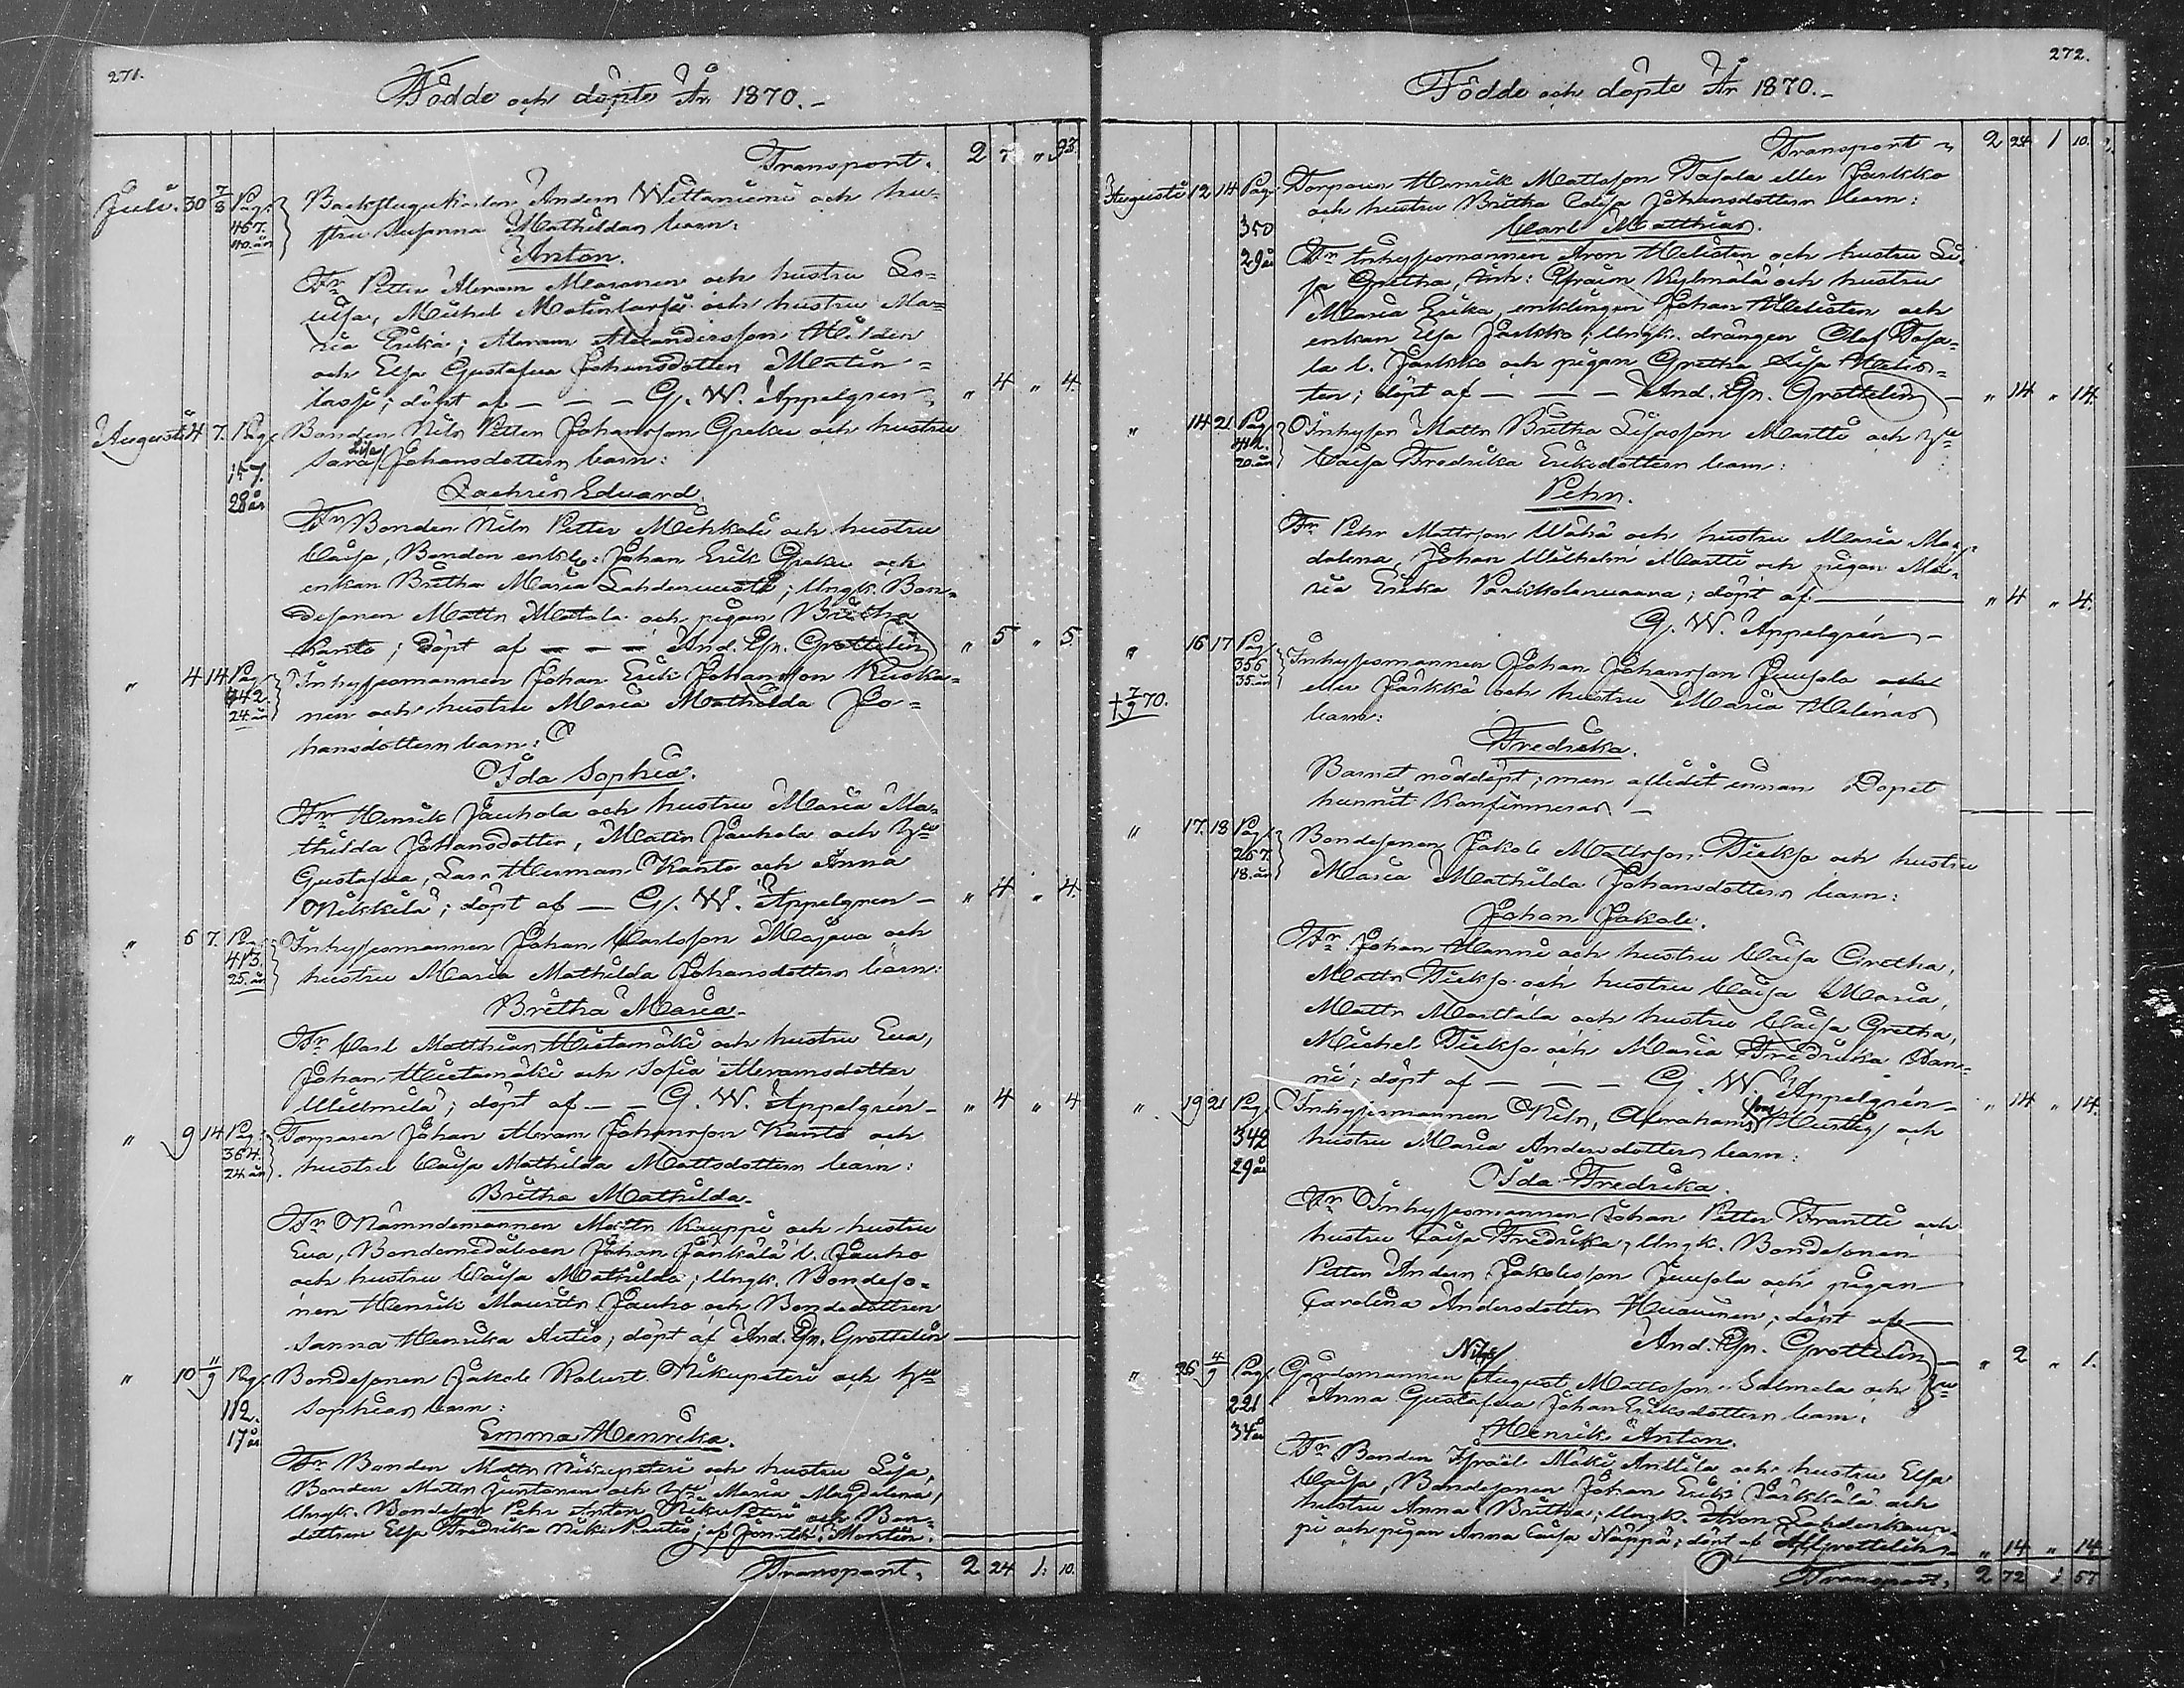 271.
Födde och döpte År 1870.-
Transport. 2 7 " 93
Juli. 30 7/8 Pag. 467. 40. år Backstugukarlen Anders Wettaniemi och hu-
stru Susanna Mathildas barn:
Anton.
Fr. Petter Abram Masonen och hustru Lo-
visa, Michel Matinlassi och hustru Ma-
ria Erika; Abram Alexandersson Hilden
och Elsa Gustafva Johansdotter Matin-
lassi; döpt af — — — G. W. Appelgren, " 4 " 4.
Augusti 4 7. Pag. 157. 28 år Bonden Nils Petter Johansson Greku och hustru
Sara Lisa Johansdotters barn:
Zachris Eduard.
Fr Bonden Nils Petter Mehkali och hustru
Caisa, Bonden enkl: Johan Erik Greku och
enkan Britha Maria Lahdenvuoti; Ungk. Bon-
desonen Matts Matala och pigan Britha
Kanto; Döpt af — — — And. Gn. Grottelin " 5 " 5.
" 4 14 Pag. 342. 24 år Inhysesmannen Johan Erik Johansson Ruoka-
nen och hustru Maria Mathilda Jo-
hansdotters barn:
Ida Sophia.
Fr Henrik Jauhola och hustru Maria Ma-
thilda Johansdotter, Matts Jauhola och hu
Gustafva, Lars Herman Kanto och Anna
Nikkilä; döpt af — G. W. Appelgren — " 4 " 4.
" 6 7. Pag. 413. 25. år Inhysesmannen Johan Carlsson Majava och
hustru Maria Mathilda Johansdotters barn:
Britha Maria.
Fr Carl Matthias Hietamäki och hustru Eva,
Johan Hietamäki och Sofia Abramsdotter
Ullmilä; döpt af — — G. W. Appelgrén — " 4 " 4
" 9 14 Pag. 364. 24 år Torparen Johan Abram Johansson Kanto och
hustru Caisa Mathilda Mattsdotters barn:
Britha Mathilda.
Fr Nämndemannen Matts Kauppi och hustru
Eva, Bondemågen Johan Jänkälä l. Jauho
och hustru Caisa Mathilda; Ungk. Bondeso-
nen Henrik Mauritz Jauho och Bondedottren
Sanna Henrika Autio; döpt af And. Gn. Grottelin
" 10 11/9 Pag. 112. 17 år Bondesonen Jakob Robert Nikupeteri och hu
Sophias barn:
Emma Henrika.
Fr Bonden Matts Nikupeteri och hustru Lisa,
Bonden Matts Juntonen och hu Maria Magdalena,
Ungk. Bondeson Pehr Anton Niku Peteri och Bon-
dottren Elsa Fredrika Niku Rautio; af Jon. Montin.
Transport, 2 24 1: 10.
272.
Födde och döpte År 1870.-
Transport 2 24 1 10.
Augusti 12 14 Pag. 350 29 år Torparen Henrik Mattsson Tasala eller Jarkko
och hustru Britha Caisa Johansdotters barn:
Carl Matthias.
Fr Inhysesmannen Aron Helisten och hustru Li-
sa Gretha, Inh: Efraim Kylmälä och hustru
Maria Erika, enklingen Johan Helisten och
enkan Elsa Jarkko, Ungk. drängen Olof Tasa-
la l. Jarkko och pigan Gretha Lisa Helis-
ten; döpt af — — — And. Gn. Grottelin — " 14 " 14.
" 14 21 Pag. 20. år Inhyses Matts Britha Lisasson Martti och hu
Caisa Fredrika Eriksdotters barn:
Pehr.
Fr Pehr Mattsson Wähä och hustru Maria Mag-
dalena, Johan Wilhelm Martti och pigan Ma-
ria Erika Parikkolanvaara; döpt af — " 4 " 4.
G. W. Appelgrén —
" 16 17 Pag. 356 35. år Inhysesmannen Johan Johansson Juusola
eller Järkkä och hustru Maria Helenas
barn:
† 7/9 70.
Fredrika.
Barnet nöddöpt; men aflidit innan Dopet
hunnit Konfirmeras —
" 17. 18 Pag. 267. 18. år Bondesonen Jakob Mattsson Tiekso och hustru
Maria Mathilda Johansdotters barn:
Johan Jakob.
Fr. Johan Hanni och hustru Caisa Gretha,
Matts Tiekso och hustru Caisa Maria,
Matts Marttala och hustru Caisa Gretha,
Michel Tiekso och Maria Fredrika Han-
ni; döpt af — — — G. W. Appelgrén — " 14 " 14.
" 19 21 Pag. 342 29 år Inhysesmannen Nils, Abrahams son Hurtig och
hustru Maria Andersdotters barn:
Ida Fredrika.
Fr Inhysesmannen Johan Petter Frantti och
hustru Caisa Fredrika, Ungk. Bondesonen
Petter Anders Jakobsson Juusola och pigan
Carolina Andersdotter Huovinen; döpt af —
And. Gn. Grottelin — " 2 " 1.
" 26 4/9 Pag. 221 34 år Gårdsmannen Nils August Mattsson Salmela och hu
Anna Gustafva Johan Eriksdotters barn:
Henrik Anton.
Fr Bonden Israël Mäki Anttila och hustru Elsa
Caisa, Bondesonen Johan Erik Järkkälä och
hustru Anna Britha; Ungk. Aron Lahdenkaup-
pi och pigan Anna Caisa Näppä; döpt af AGrottelin " 14 " 14
Transport, 2 72 1 57